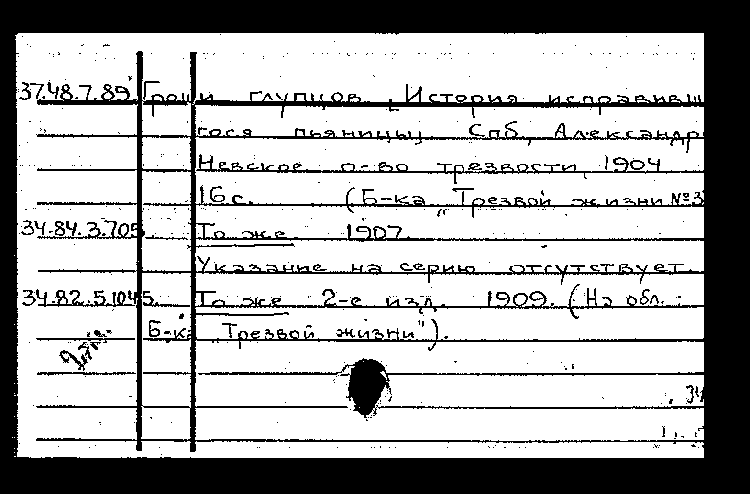 37.48.7.89 Гроши глупцов. [История исправивш
гося пьяницы]. Спб., Александро
Невское о-во трезвости, 1904
16 с. (Б-ка „Трезвой жизни № 3
34.84.3.705 То же 1907.
Указание на серию отсутствует.
34.82.5.1045. То же 2-е изд. 1909. (На обл.:
Б-ка „Трезвой жизни").
34